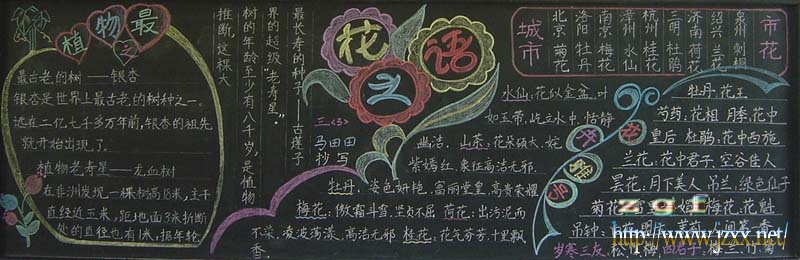 植物之最
最古老的树——银杏
银杏是世界上最古老的树种之一。
远在二亿七千多万年前,银杏的祖先
就开始出现了。
植物老寿星——龙血树
在非洲发现一棵树高18米,主干
直经近五米,距地面3米折断
处的直径也有1米,据年轮
推断,这棵大
树的年龄至少有八千岁,是植物
界的超级“老寿星”。
最长寿的种子——古莲子
花之语
三<5>
马田田
抄写
城市
北京 洛阳 南京 漳州 杭州 三明 济南 绍兴 泉州
菊花 牡丹 梅花 水仙 桂花 杜鹃 荷花 兰花 刺桐
市花
水仙:花似金盆,叶
如玉带,屹立水中,恬静
幽洁。山茶:花朵硕大,姹
紫嫣红,象征高洁无邪.
牡丹,姿色娇艳,富丽堂皇,高贵荣耀
梅花:傲霜斗雪,坚贞不屈 荷花:出污泥而
不染,凌波荡漾,高洁无邪 桂花,花气芬芳,十里飘
香.
花卉雅号
牡丹,花王
芍药,花相 月季,花中
皇后 杜鹃,花中西施
兰花:花中君子,空谷佳人
昙花:月下美人 吊兰,绿色仙子
梅花,花魁
岁寒三友,松竹梅
zgt
http://www.jzxx.net/